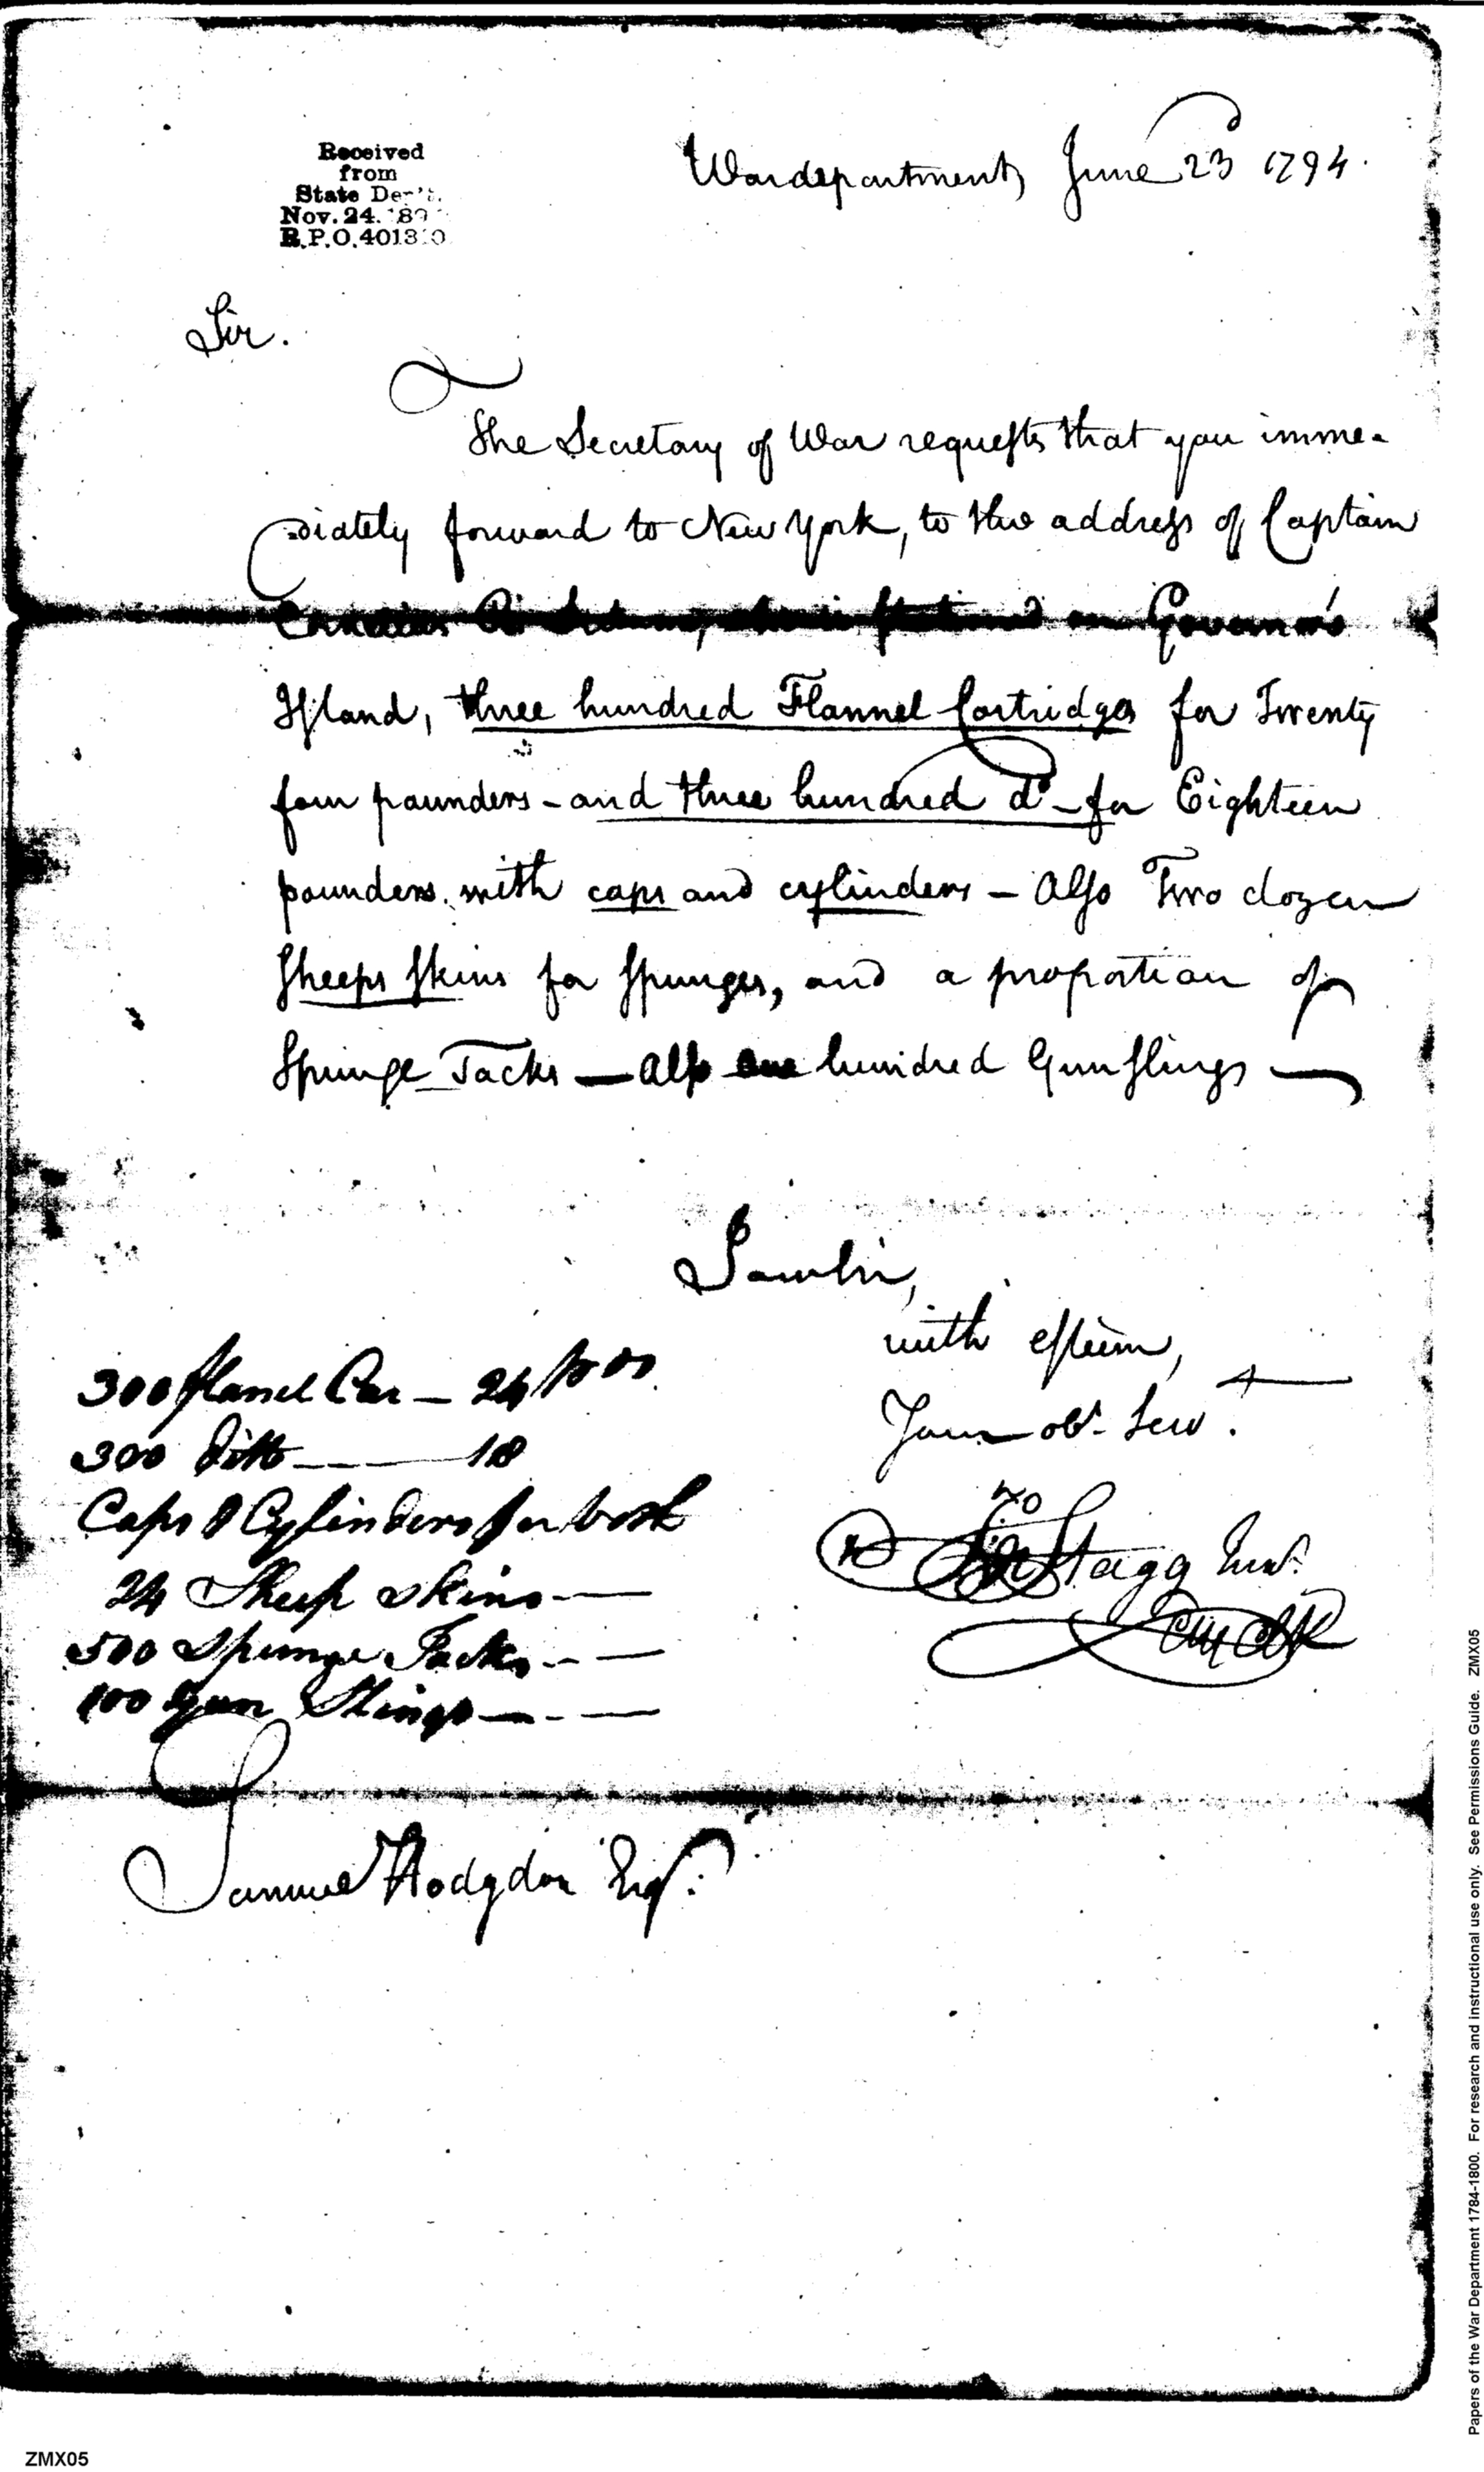 Received
from
State Dep't.
Nov. 24. 189
R.P.O. 401310
Wardepartment, June 23d 1794.
Sir.
The Secretary of War requests that you imme-
diately forward to New York, to the address of Captain
Governor's
Island, three hundred Flannel Cartridges for Twenty
four pounders - and three hundred do - for Eighteen
pounders. with caps and cylinders - also Two dozen
sheeps skins for spunges, and a proportion of
Spunge Tacks — also one hundred Gun slings —
I am Sir,
with esteem,
Your obt. Servt.
Jno Stagg Junr.
300 flanel Car - 24
300 Ditto - - - 18
Caps & Cylinders for both
24 Sheep Skins - —
500 Spunge Tacks - - —
100 Gun Slings - - —
Samuel Hodgdon Esqr.
Papers of the War Department 1784-1800. For research and instructional use only. See Permissions Guide. ZMX05
ZMX05